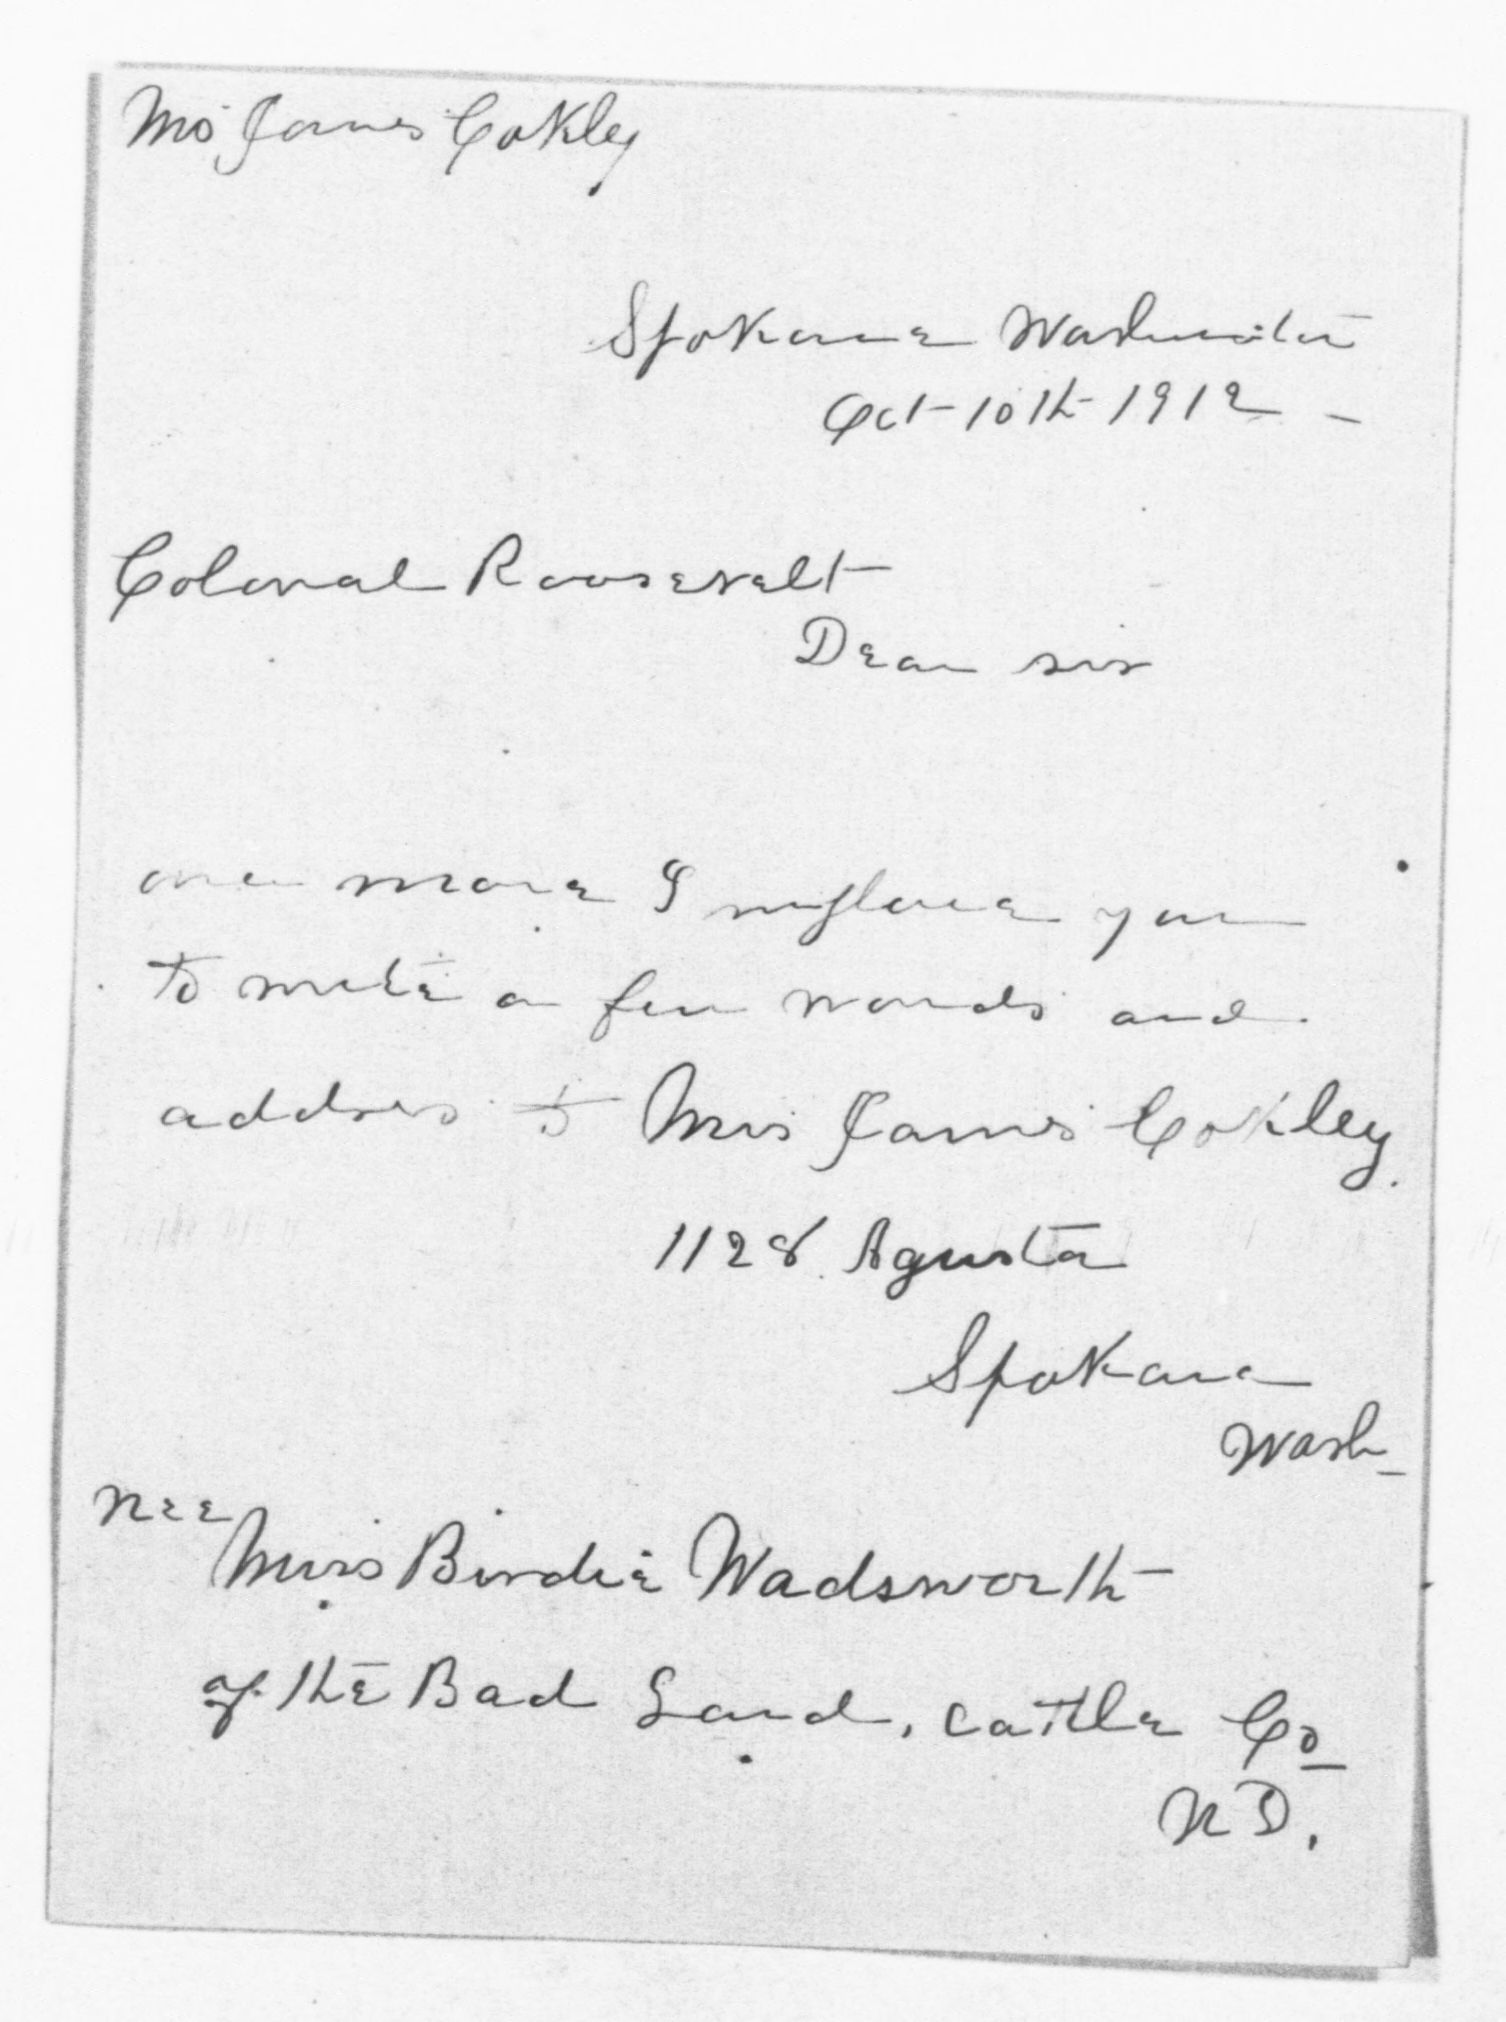 Mrs James Cokley
Spokane Washington
Oct-10th-1912-
Colonal Roosevelt
Dear sir
once more I implore you
to write a few words and
address to Mrs James Cokley.
1128 Agusta
Spokane
Wash-
nee
Miss Birdie Wadsworth
of the Bad Land, cattle Co
ND.